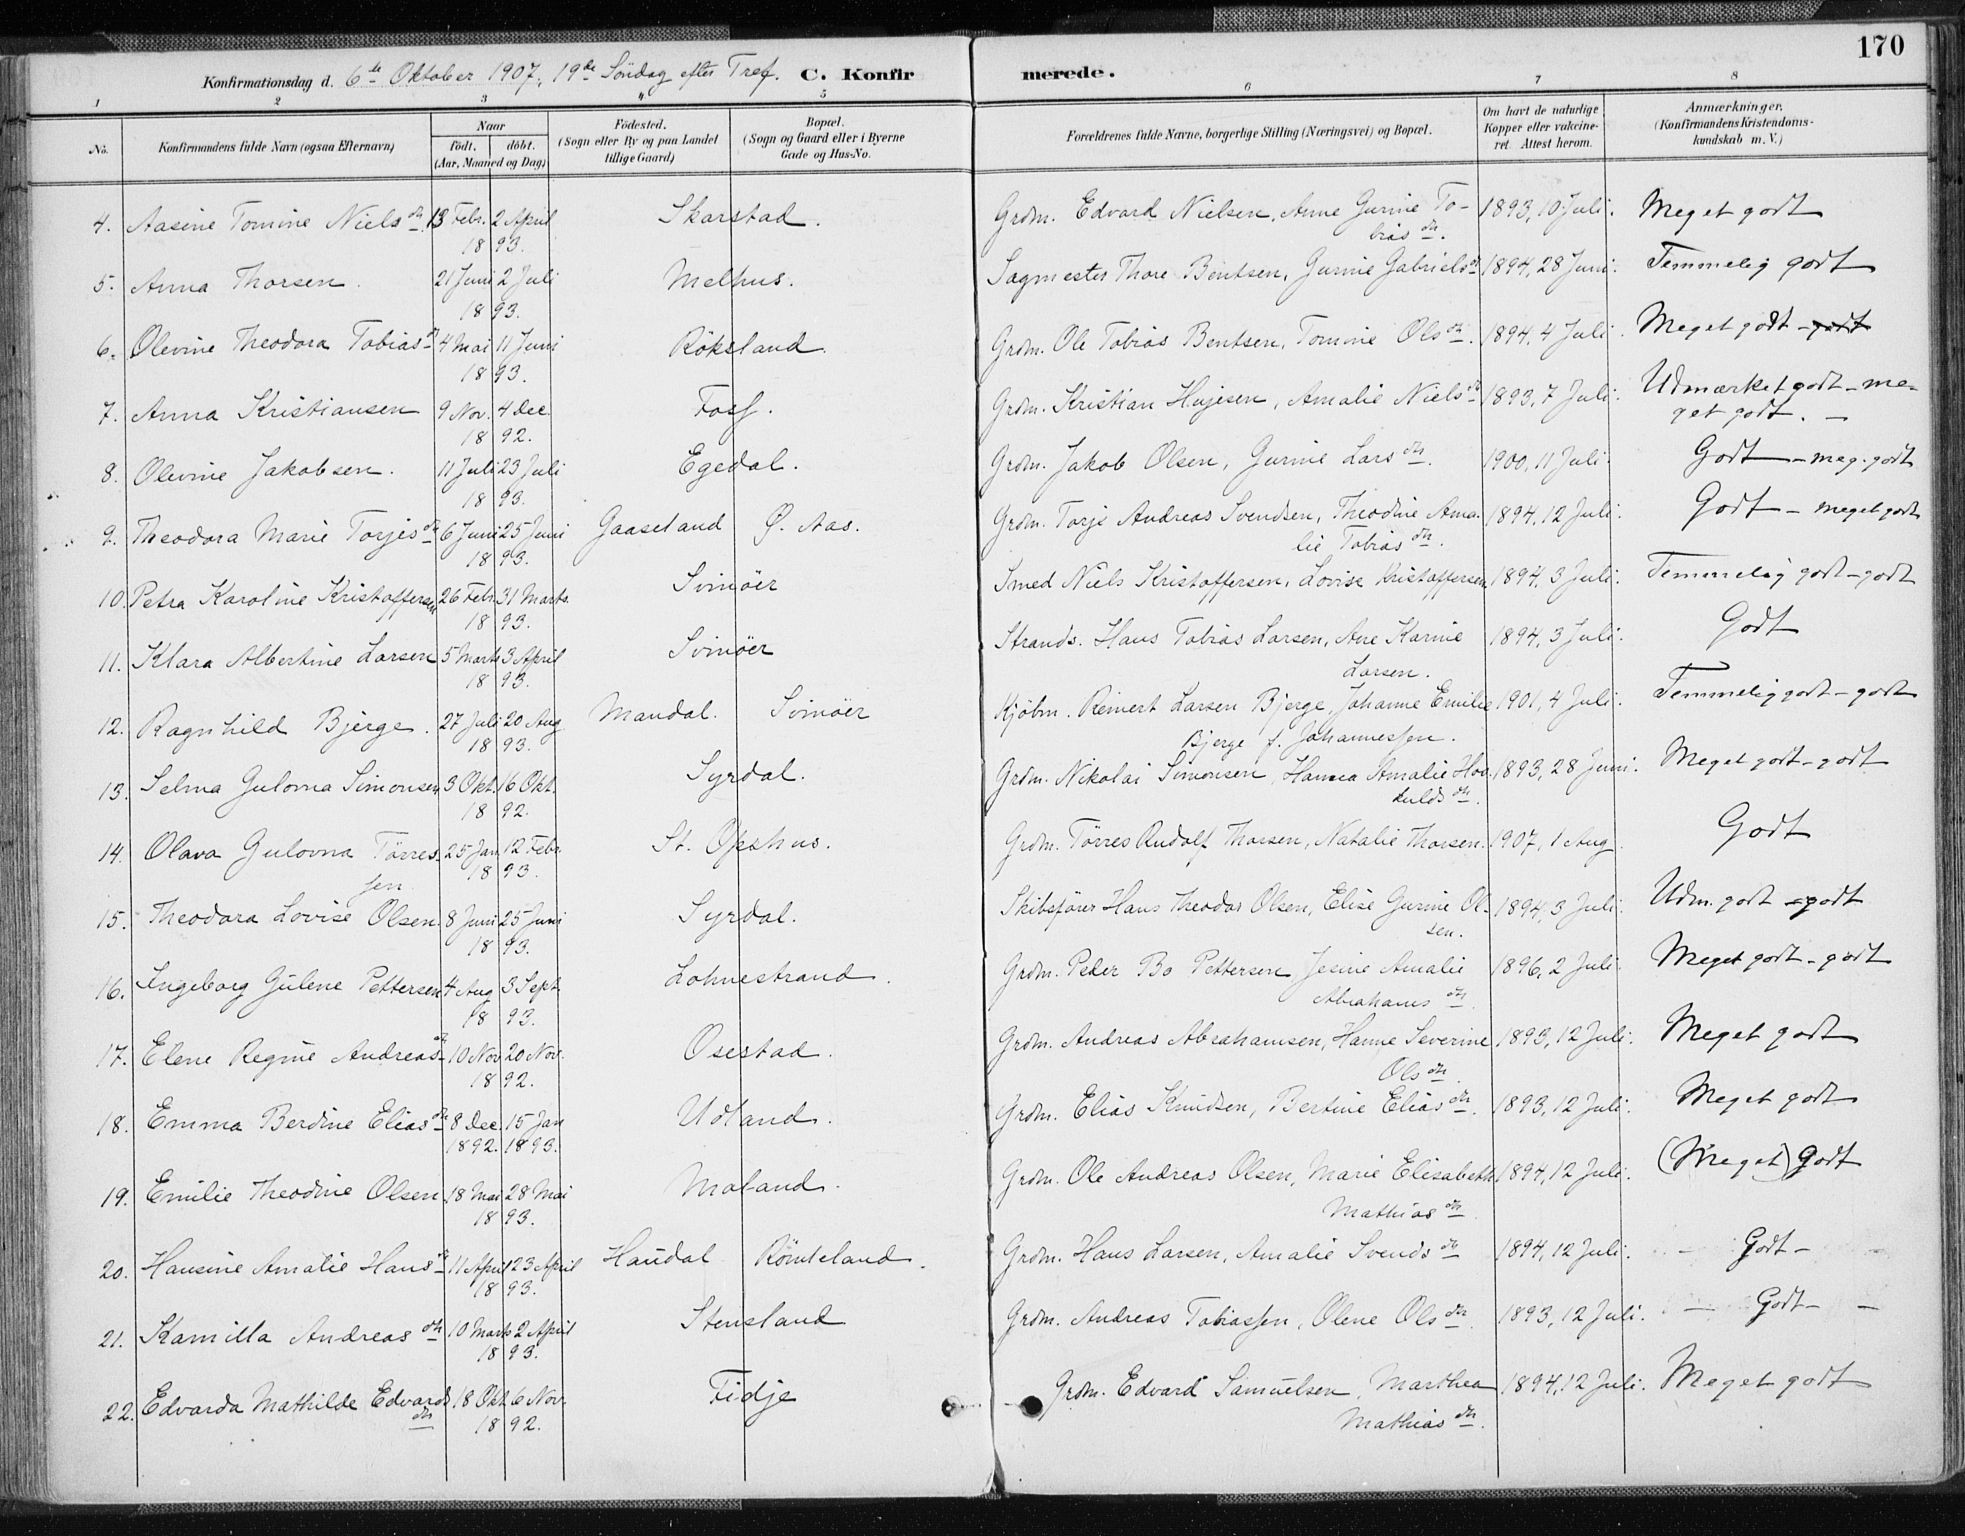 170
Konfirmationsdag d. 6te Oktober 1907, 19de Söndag efter Tref. C. Konfirmerede.
1 2 3 4 5 6 7 8
No. Konfirmandens fulde Navn (ogsaa Efternavn) Naar födt. döbt. (Aar, Maaned og Dag) Födested. (Sogn eller By og paa Landet tillige Gaard) Bopæl. (Sogn og Gaard eller i Byerne Gade og Hus-No. Forældrenes fulde Navne, borgerlige Stilling (Næringsvei) og Bopæl. Om havt de naturlige Kopper eller vakcineret. Attest herom. Anmærkninger. (Konfirmandens Kristendomskundskab m. V.)
4. Aasine Tomine Nielsdtr. 13 Febr. 2 April Skarstad. Grdm. Edvard Nielsen, Anne Gurine To- 1893, 10 Juli. Meget godt
1893. biasdtr.
5. Anna Thorsen. 21 Juni 2 Juli Melhus. Sagmester Thore Bentsen, Gurine Gabrielsdtr 1894, 28 Juni. Temmelig godt
1893.
6. Olevine Theodora Tobiasdtr 4 Mai 11 Juni Röksland. Grdm. Ole Tobias Bentsen, Tomine Olsdtr. 1894, 4 Juli. Meget godt - godt
1893.
7. Anna Kristiansen 9 Nov. 4 Dec. Foss. Grdm. Kristian Hujesen, Amalie Nielsdtr 1893, 7 Juli. Udmærket godt - me-
1892. get godt. -
8. Olevine Jakobsen. 11 Juli 23 Juli Egedal. Grdm. Jakob Olsen, Gurine Larsdtr. 1900, 11 Juli. Godt - meg. godt
1893.
9. Theodora Marie Torjesdtr 6 Juni 25 Juni Gaaseland Ø. Aas. Grdm. Torje Andreas Svendsen, Theodine Ama- 1894, 12 Juli. Godt - meget godt
1893. lie Tobiasdtr.
10. Petra Karoline Kristoffersen 26 Febr. 31 Marts. Svinöer Smed Niels Kristoffersen, Lovise Kristoffersen 1894, 3 Juli. Temmelig godt - godt
1893.
11. Klara Albertine Larsen 5 Marts 3 April Svinöer Strands. Hans Tobias Larsen, Ane Karine 1894, 3 Juli. Godt
1893. Larsen.
12. Ragnhild Bjerge. 27 Juli 20 Aug Mandal. Svinöer Kjöbm. Reinert Larsen Bjerge, Johanne Emilie 1901, 4 Juli. Temmelig godt - godt
1893. Bjerge f. Johannessen.
13. Selma Gulovna Simonsen 3 Okt. 16 Okt. Syrdal. Grdm. Nikolai Simonsen, Hanna Amalie Hov- 1893, 28 Juni. Meget godt - godt
1892. kuldsdtr.
14. Olava Gulovna Tørres- 25 Jan. 12 Febr St. Opshus. Grdm. Tørres Rudolf Thorsen, Natalie Thorsen. 1907, 1 Aug. Godt
sen. 1893.
15. Theodora Lovise Olsen. 8 Juni 25 Juni Syrdal. Skibsförer Hans Theodor Olsen, Elise Gurine Ol- 1894, 3 Juli. Udm. godt - godt
1893. sen.
16. Ingeborg Gülene Pettersen 4 Aug. 3 Sept. Lohnestrand. Grdm. Peder Bo Pettersen Jesine Amalie 1896, 2 Juli. Meget godt - godt
1893. Abrahamsdtr.
17. Elene Regine Andreasdtr 10 Nov. 20 Nov. Osestad. Grdm. Andreas Abrahamsen, Hanne Severine 1893, 12 Juli. Meget godt
1892. Olsdtr.
18. Emma Berdine Eliasdtr 8 Dec. 15 Jan Udland. Grdm. Elias Knudsen, Bertine Eliasdtr. 1893, 12 Juli. Meget godt
1892. 1893.
19. Emilie Theodine Olsen 18 Mai 28 Mai Moland. Grdm. Ole Andreas Olsen, Marie Elisabeth 1894, 12 Juli. (Meget) Godt
1893. Mathiasdtr.
20. Hansine Amalie Hansdtr 11 April 23 April Haüdal Römteland. Grdm. Hans Larsen, Amalie Svendsdtr 1894, 12 Juli. - Godt -
1893.
21. Kamilla Andreasdtr 10 Marts 2 April Stensland Grdm. Andreas Tobiassen, Olene Olsdtr. 1893, 12 Juli. - Godt - -
1893.
22. Edvarda Mathilde Edvards 18 Okt. 6 Nov. Fidje Grdm. Edvard Samuelsen, Marthea 1894, 12 Juli. Meget godt
dtr 1892. Mathiasdtr.